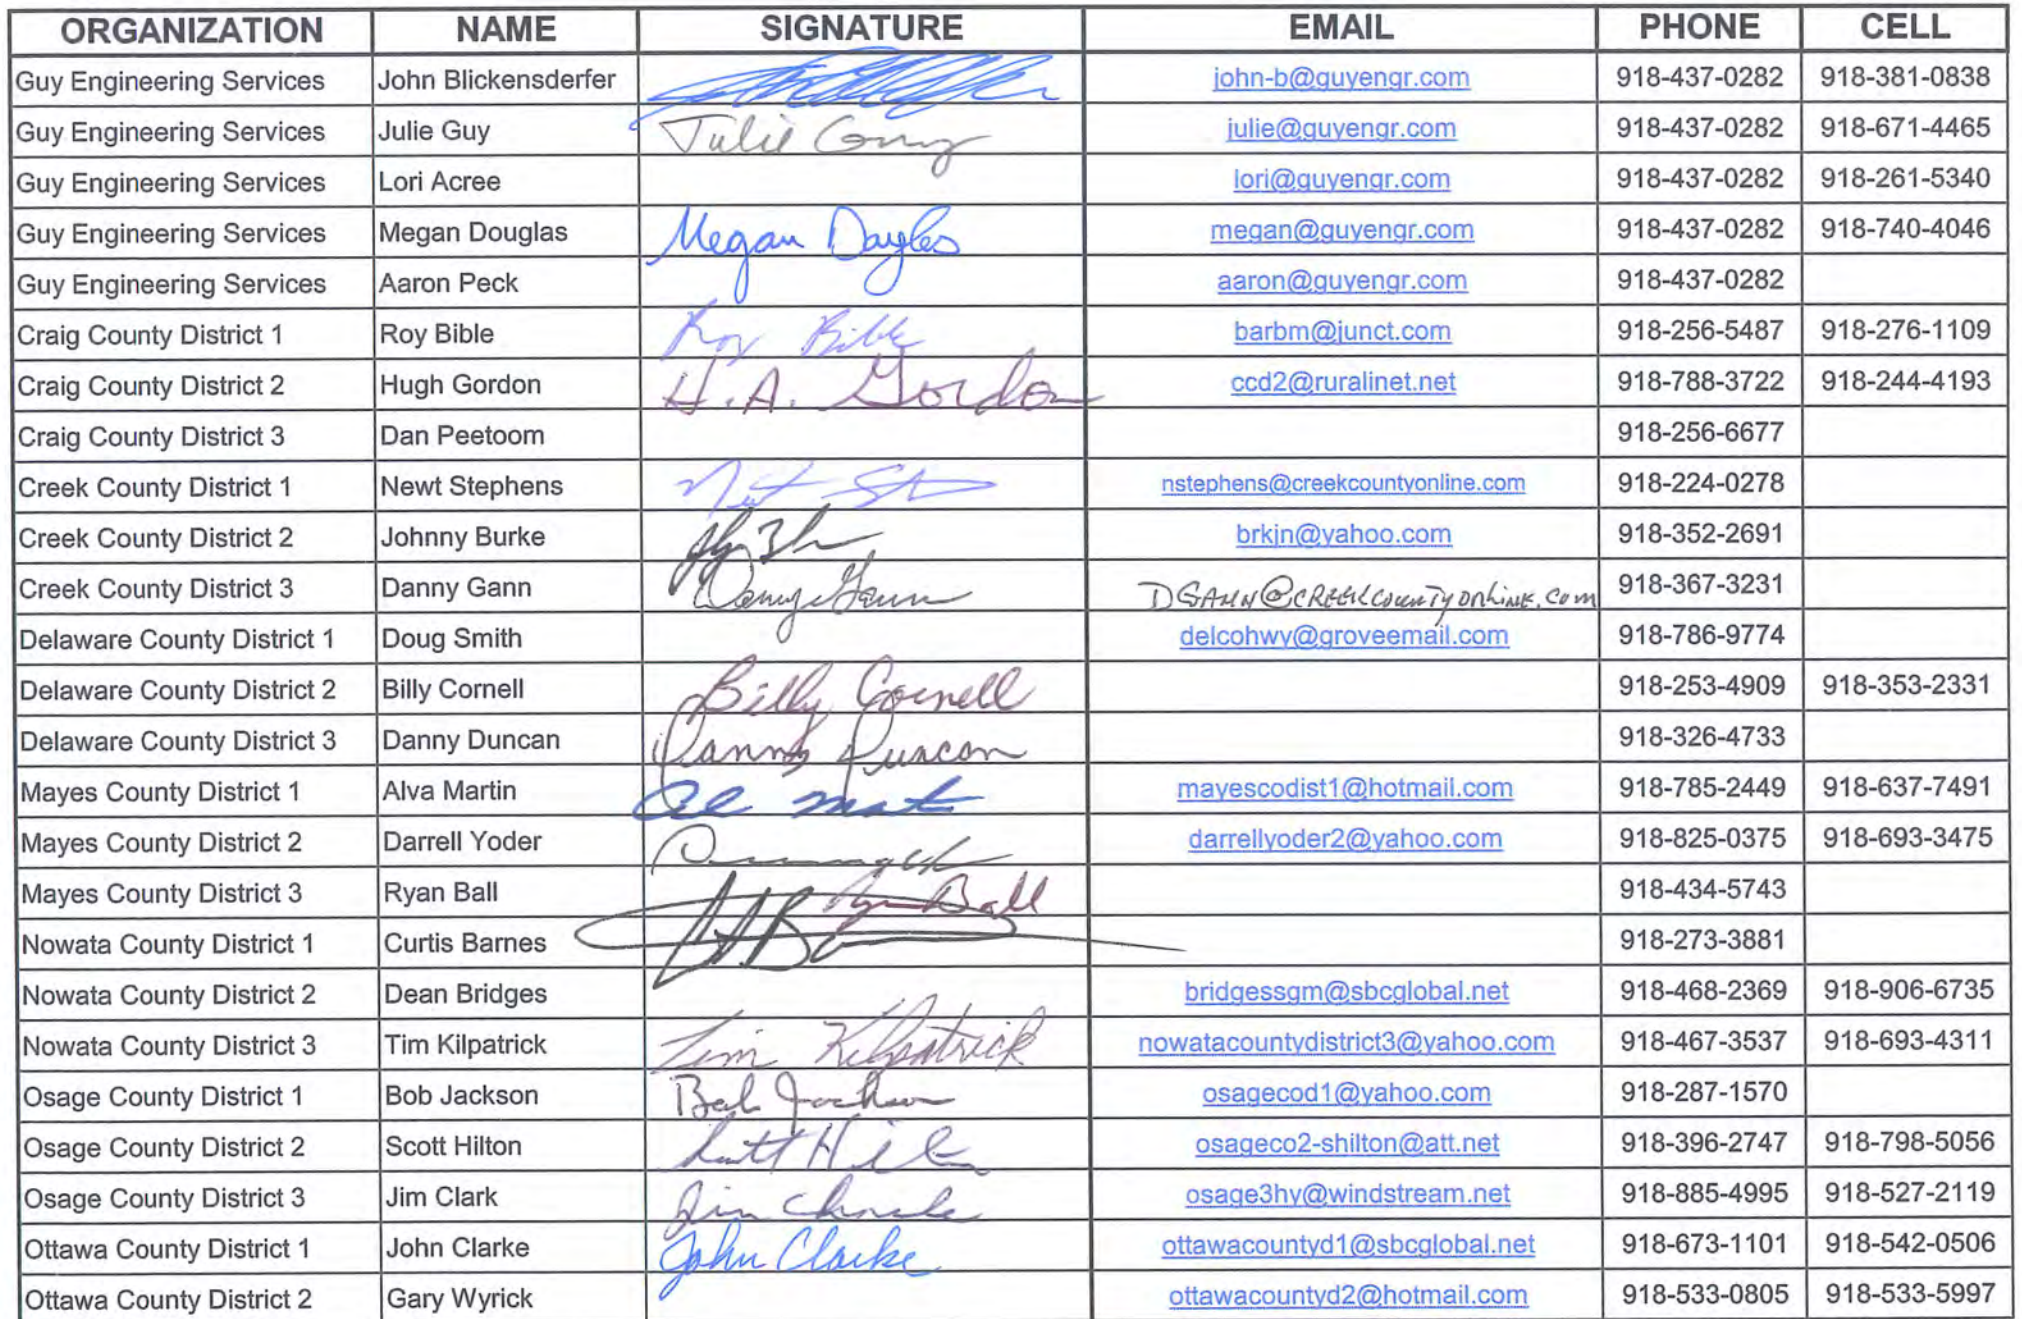 ORGANIZATION NAME SIGNATURE EMAIL PHONE CELL
Guy Engineering Services John Blickensderfer john-b@guyengr.com 918-437-0282 918-381-0838
Guy Engineering Services Julie Guy Julie Guy julie@guyengr.com 918-437-0282 918-671-4465
Guy Engineering Services Lori Acree lori@guyengr.com 918-437-0282 918-261-5340
Guy Engineering Services Megan Douglas Megan Douglas megan@guyengr.com 918-437-0282 918-740-4046
Guy Engineering Services Aaron Peck aaron@guyengr.com 918-437-0282
Craig County District 1 Roy Bible Roy Bible barbm@junct.com 918-256-5487 918-276-1109
Craig County District 2 Hugh Gordon H.A. Gordon ccd2@ruralinet.net 918-788-3722 918-244-4193
Craig County District 3 Dan Peetoom 918-256-6677
Creek County District 1 Newt Stephens nstephens@creekcountyonline.com 918-224-0278
Creek County District 2 Johnny Burke brkjn@yahoo.com 918-352-2691
Creek County District 3 Danny Gann Danny Gann DGANN@CREEKCOUNTYONLINE.COM 918-367-3231
Delaware County District 1 Doug Smith delcohwy@groveemail.com 918-786-9774
Delaware County District 2 Billy Cornell Billy Cornell 918-253-4909 918-353-2331
Delaware County District 3 Danny Duncan Danny Duncan 918-326-4733
Mayes County District 1 Alva Martin mayescodist1@hotmail.com 918-785-2449 918-637-7491
Mayes County District 2 Darrell Yoder darrellyoder2@yahoo.com 918-825-0375 918-693-3475
Mayes County District 3 Ryan Ball Ryan Ball 918-434-5743
Nowata County District 1 Curtis Barnes 918-273-3881
Nowata County District 2 Dean Bridges bridgessgm@sbcglobal.net 918-468-2369 918-906-6735
Nowata County District 3 Tim Kilpatrick Tim Kilpatrick nowatacountydistrict3@yahoo.com 918-467-3537 918-693-4311
Osage County District 1 Bob Jackson Bob Jackson osagecod1@yahoo.com 918-287-1570
Osage County District 2 Scott Hilton Scott Hilton osageco2-shilton@att.net 918-396-2747 918-798-5056
Osage County District 3 Jim Clark Jim Clark osage3hy@windstream.net 918-885-4995 918-527-2119
Ottawa County District 1 John Clarke John Clarke ottawacountyd1@sbcglobal.net 918-673-1101 918-542-0506
Ottawa County District 2 Gary Wyrick ottawacountyd2@hotmail.com 918-533-0805 918-533-5997